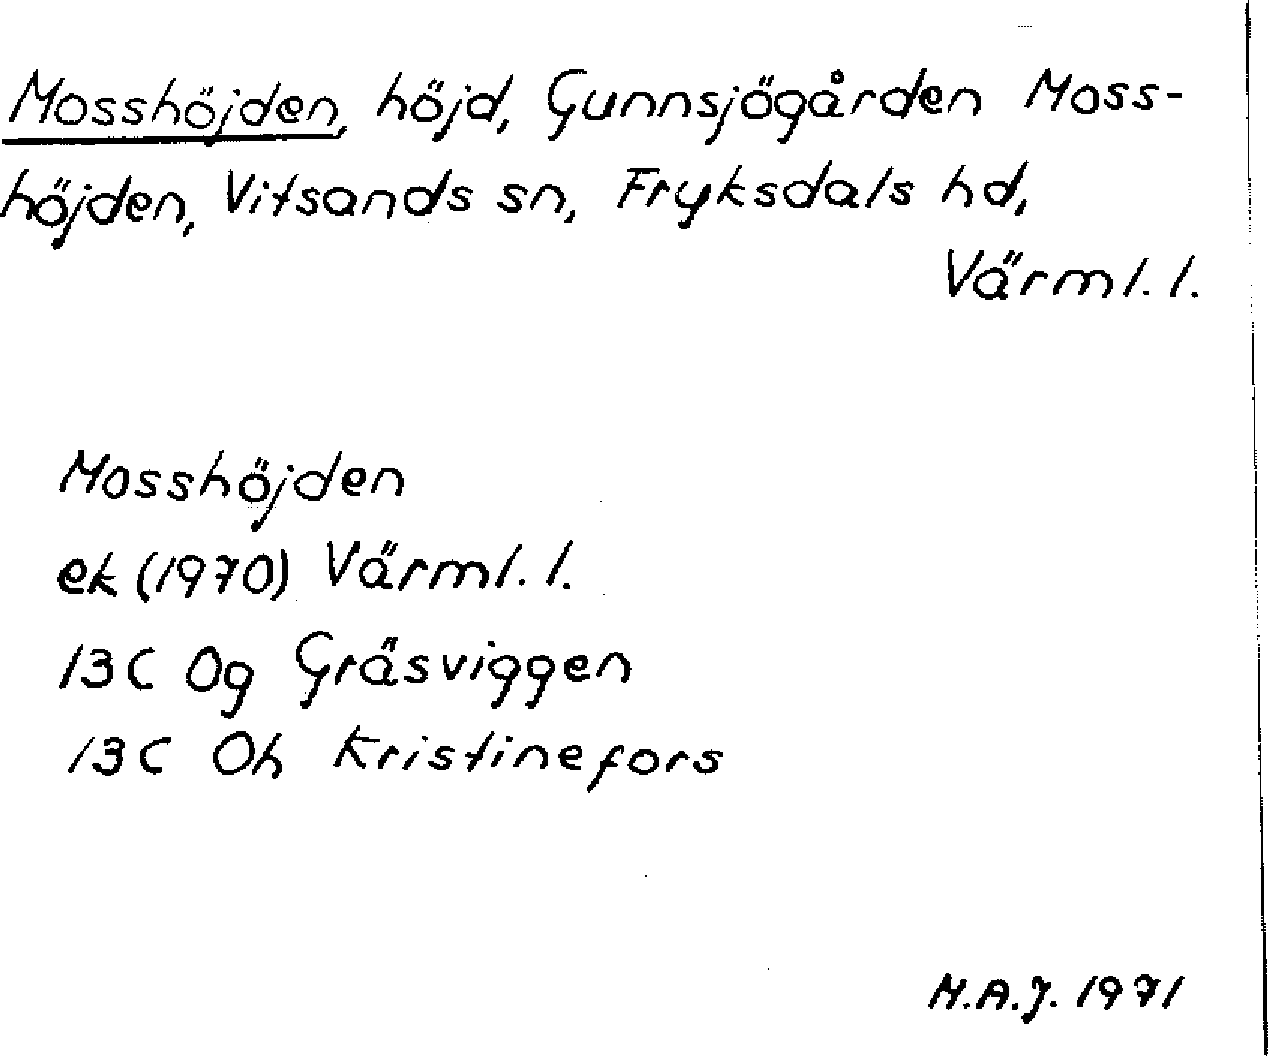 Mosshöjden, höjd, Gunnsjögården Moss-
höjden, Vitsands sn, Fryksdals hd,
Värml. l.
Mosshöjden
ek (1970) Värml. l.
13C Og Gräsviggen
13C Oh Kristinefors
M.A.J. 1971